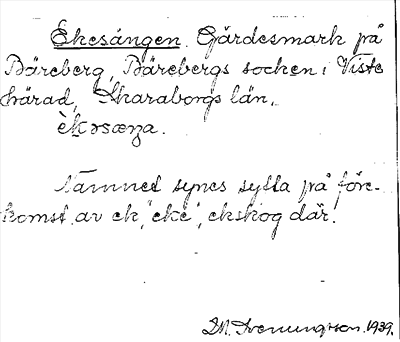 Ekesängen. Gärdesmark på
Bäreberg, Bärebergs socken, Viste
härad, Skaraborgs län.
èkəsæŋa.
Namnet synes syfta på före-
komst av ek, "eke", ekskog där.
M. Svenungsson. 1939.